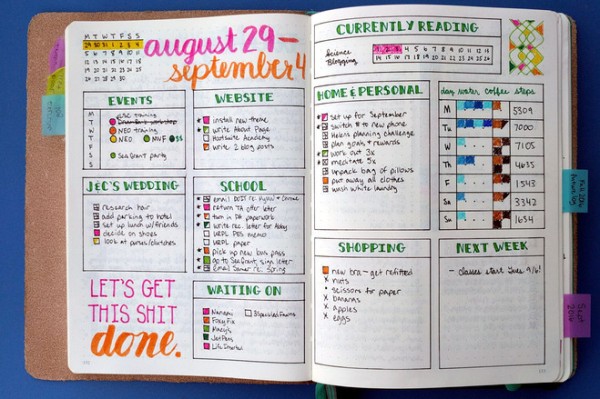 M T W T F S S
29 30 31 1 2 3 4
5 6 7 8 9 10 11
12 13 14 15 16 17 18
19 20 21 22 23 24 25
26 27 28 29 30
august 29-
september 4
EVENTS
M
T NEO training
W NEO MVF $$
T
F
S Sea Grant party
S
WEBSITE
install new theme
write About Page
Hootsuite Academy
write 2 blog posts
J&C'S WEDDING
research hair
add parking to hotel
set up lunch w/friends
decide on shoes
look at purses/clutches
SCHOOL
return TA offer letter
turn in PA paperwork
write rec. letter for Abby
WRPL PBS memo
WRPL paper
pick up new bus pass
go to SeaGrant, sign letter
LET'S GET
THIS SHIT
done.
WAITING ON
FoxyFix
Macy's
JetPens
CURRENTLY READING
Science
Blogging
1 2 3 4 5 6 7 8 9 10 11 12 13
HOME & PERSONAL
set up for September
switch to new phone
Helens planning challenge
plan goals + rewards
work out 3x
meditate 5x
unpack bag of pillows
put away all clothes
wash white laundry
day water coffee steps
M 5309
Tu 7000
W 7105
Th 4635
F 1543
Sa 3342
Su 1654
SHOPPING
new bra - get refitted
nuts
scissors for paper
bananas
apples
eggs
NEXT WEEK
- classes start Tues 9/6!
Fall 2016
Sept
2016